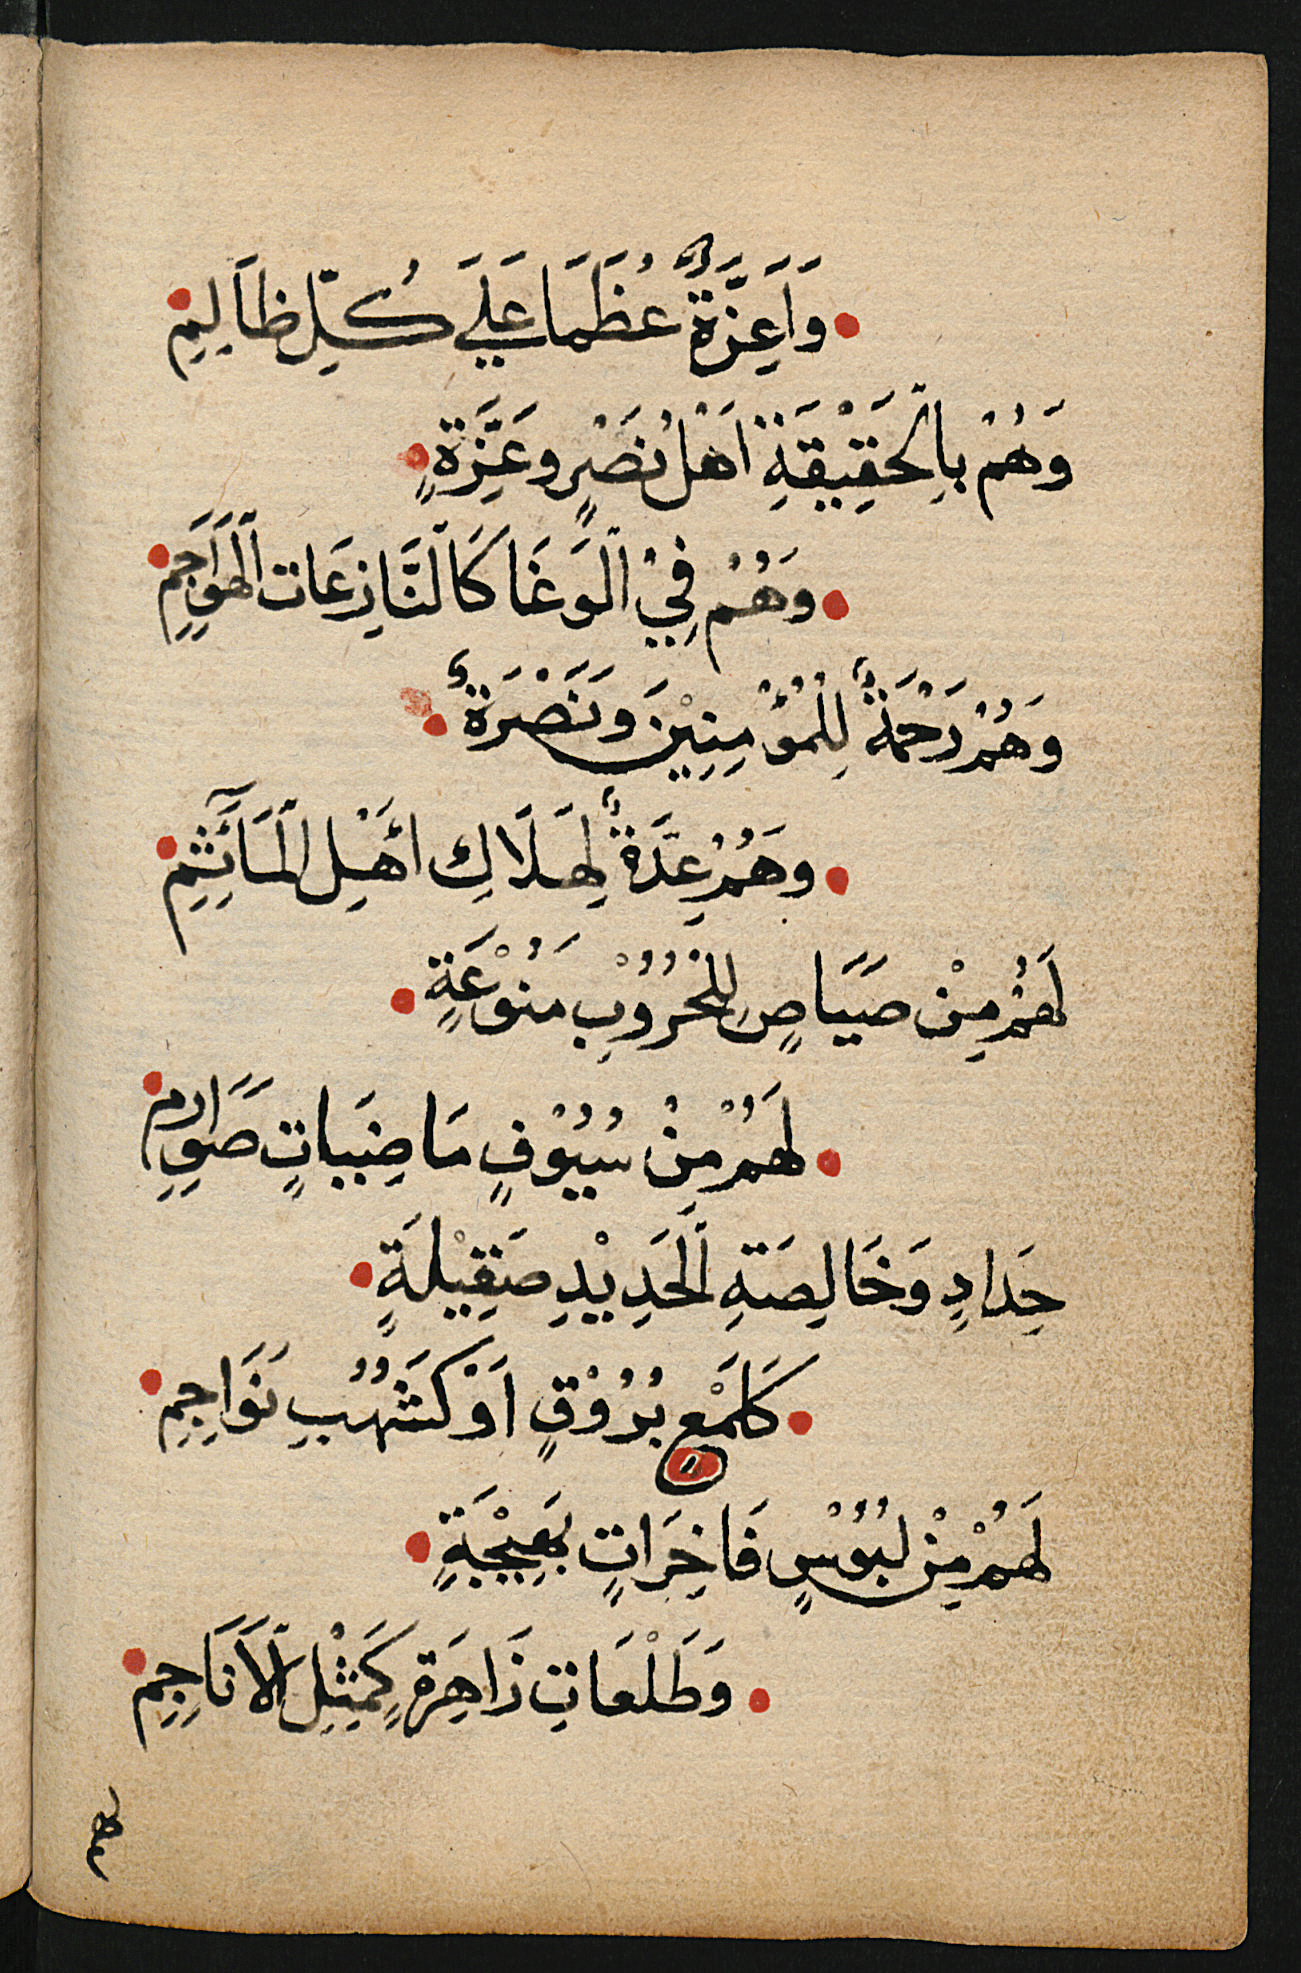 وَاَعِزَّةٌ عُظَمَا عَلَي كُلِّ ظَالِمِ
وَهُمْ بِالْحَقِيْقَةِ اَهْلُ نَصْرٍ وَعِزَّةٍ
وَهُمْ فِيْ الْوَغَا كَالنَّازِعَاتِ الْهَوَاجِمِ
وَهُمْ رَحْمَةٌ لِلْمُؤْمِنِيْنَ وَنَصْرَةٌ
وَهُمْ عِدَّةٌ لِهَلَاكِ اَهْلِ الْمَآثِمِ
لَهُمْ مِنْ صَيَاصٍ لِلْحُرُوْبِ مَنُوْعَةٍ
لَهُمْ مِنْ سُيُوْفٍ مَاضِيَاتٍ صَوَارِمِ
حِدَادِ وَخَالِصَةِ الْحَدِيْدِ صَقِيْلَةٍ
كَلَمْعِ بُرُوْقٍ اَوْ كَشُهُبِ نَوَاجِمِ
لَهُمْ مِنْ لُبُوْسٍ فَاخِرَاتٍ بَهِيْجَةٍ
وَطَلْعَاتِ زَاهِرَةٍ كَمِثْلِ الْاَنَاجِمِ
لهم